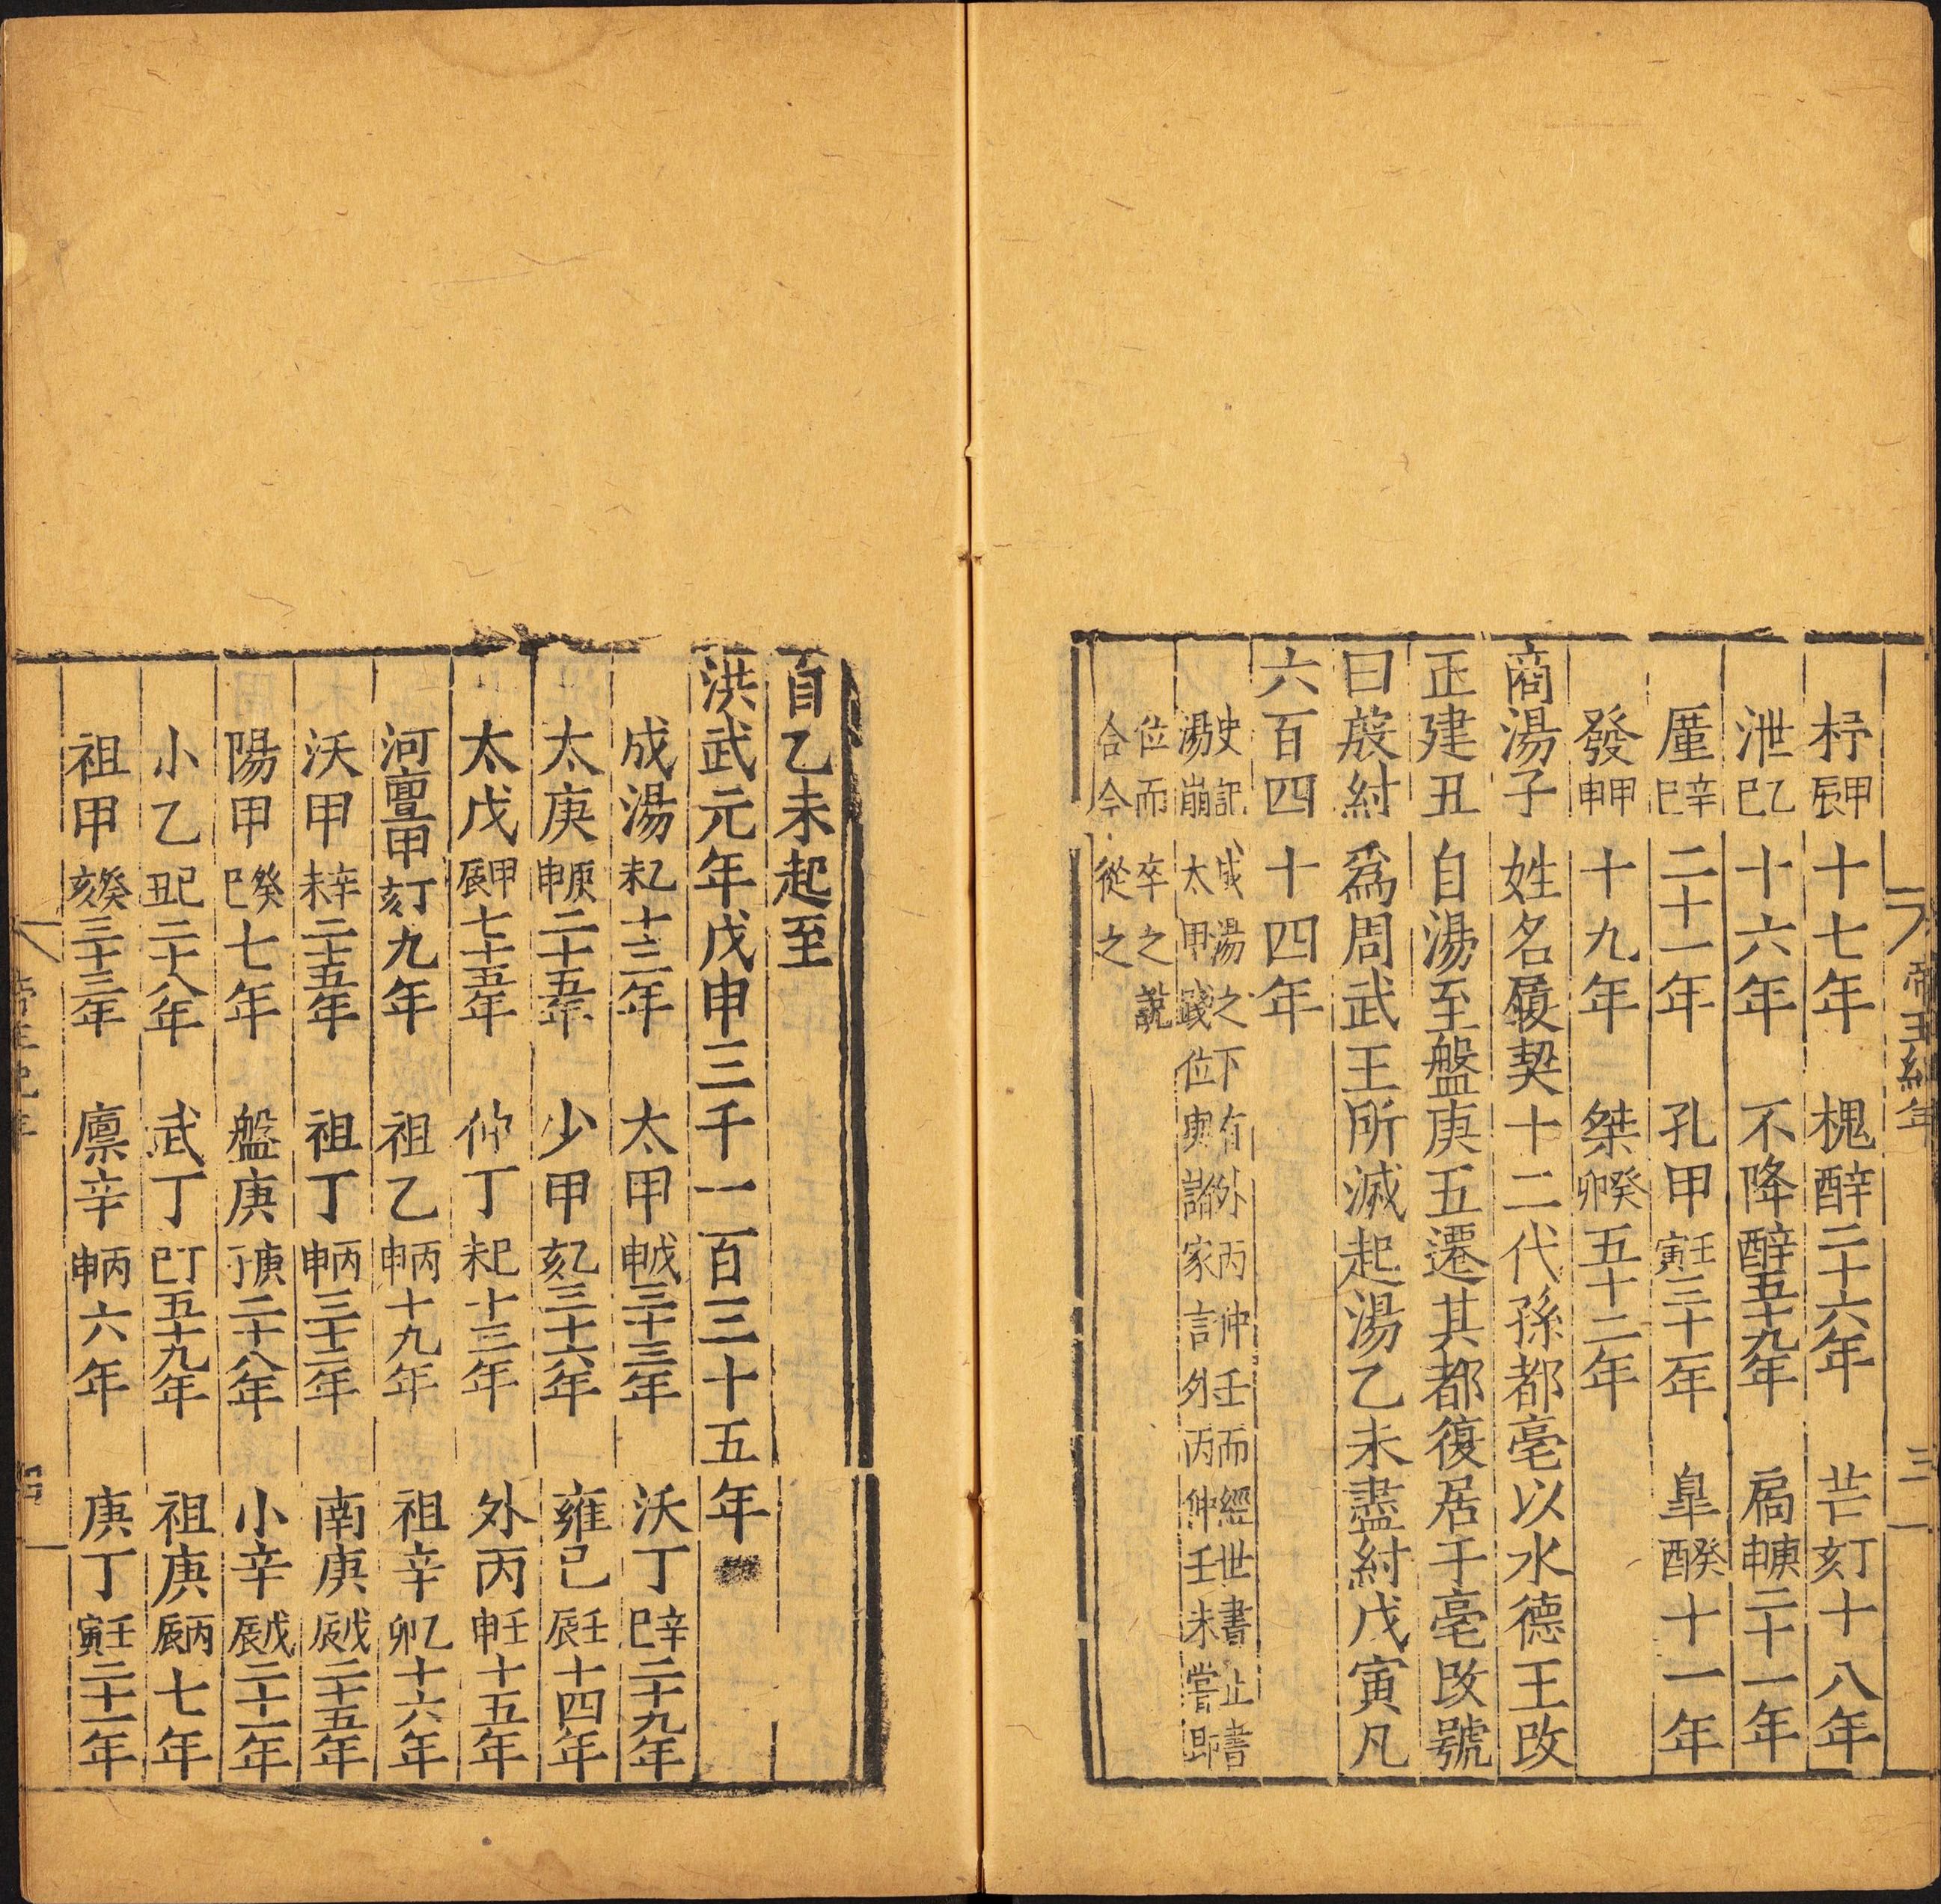 帝王紀年 三
杼甲辰十七年 槐辛酉二十六年 芒丁亥十八年
泄乙巳十六年 不降辛酉五十九年 扃庚申二十一年
厪辛巳二十一年 孔甲壬寅三十一年 臯癸酉十一年
發甲申十九年 桀癸卯五十二年
商湯子姓名履契十二代孫都亳以水德王改
正建丑自湯至盤庚五遷其都復居于亳改號
曰殷紂爲周武王所滅起湯乙未盡紂戊寅凡
六百四十四年
史記成湯之下有外丙仲壬而經世書止書
湯崩太甲踐位輿論家言外丙仲壬未嘗即
位而卒之說
合今從之
自乙未起至
洪武元年戊申三千一百三十五年
成湯乙未十三年 太甲戊申三十三年 沃丁辛巳二十九年
太庚庚申二十五年 少甲乙亥三十六年 雍己壬辰十四年
太戊甲辰七十五年 仲丁己未十三年 外丙壬申十五年
河亶甲丁亥九年 祖乙丙申十九年 祖辛乙卯十六年
沃甲辛未二十五年 祖丁丙申三十二年 南庚戊辰二十五年
陽甲癸巳七年 盤庚庚子二十八年 小辛戊辰二十一年
小乙己丑二十八年 武丁丁巳五十九年 祖庚丙辰七年
祖甲癸亥三十三年 廪辛丙申六年 庚丁壬寅二十一年